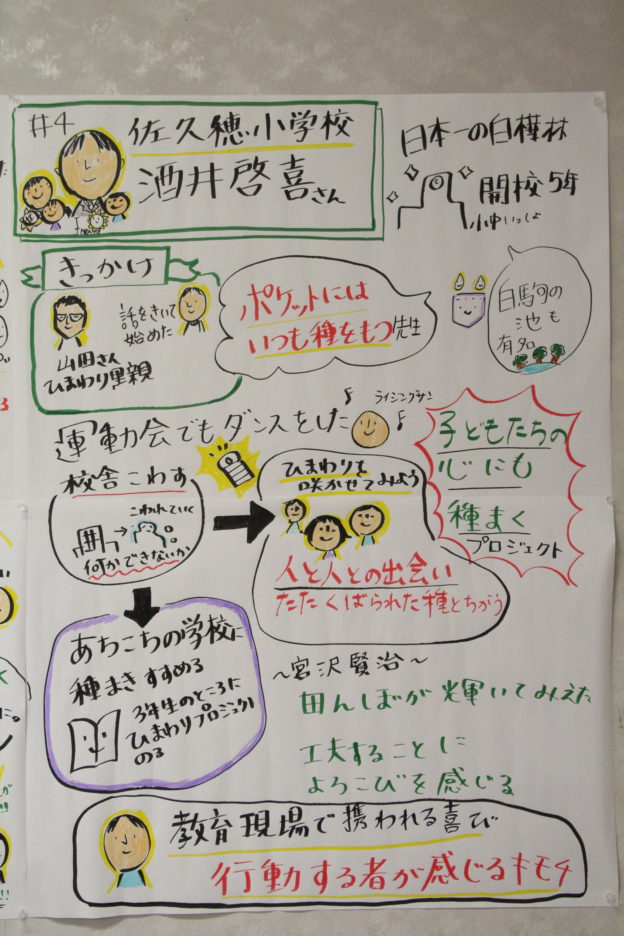 #4
佐久穂小学校
酒井啓喜さん
日本一の白樺林
開校5年
小中いっしょ
きっかけ
話をきいて
始めた
山田さん
ひまわり里親
ポケットには
いつも種をもつ先生
白駒の
池も
有名
運動会でもダンスをした
ライジングサン
子どもたちの
心にも
種まく
プロジェクト
校舎こわす
こわれていく
何かできないか
ひまわりを
咲かせてみよう
人と人との出会い
ただくばられた種とちがう
あちこちの学校に
種まきすすめる
3年生のところに
ひまわりプロジェクト
のる
〜宮沢賢治〜
田んぼが輝いてみえた
工夫することに
よろこびを感じる
教育現場で携われる喜び
行動する者が感じるキモチ